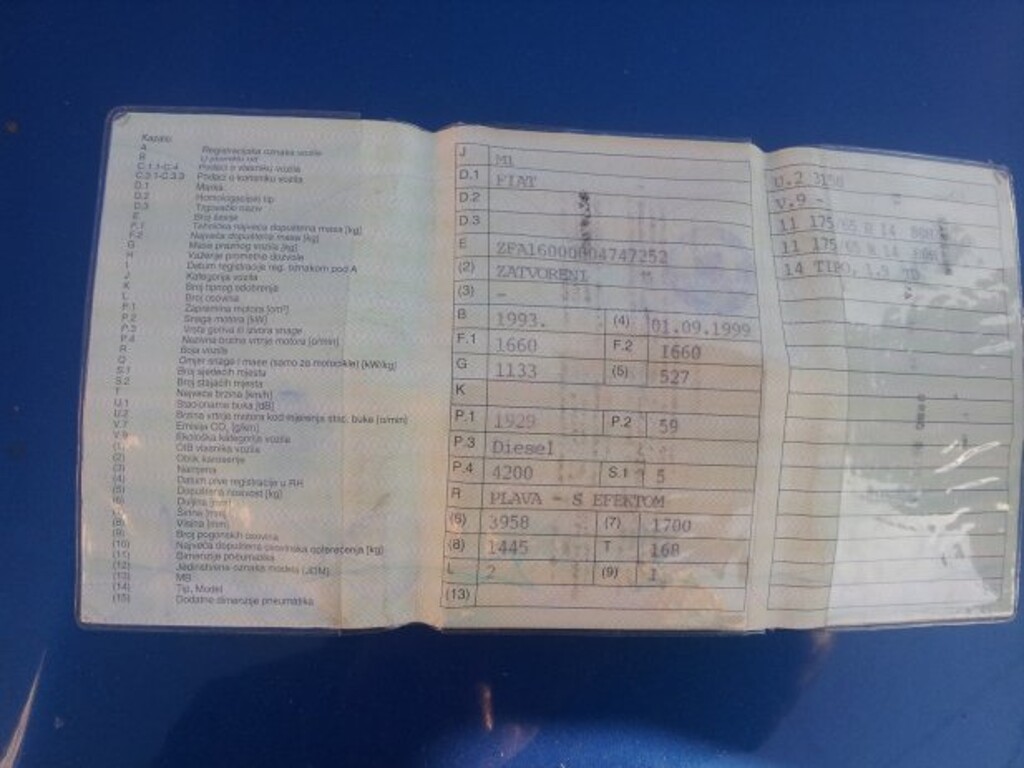 Kazalo
A Registracijska oznaka vozila
B
C.1.1-C.4 Podaci o vlasniku vozila
C.3.1-C.3.3 Podaci o korisniku vozila
D.1 Marka
D.2 Homologacijski tip
D.3 Trgovački naziv
E Broj šasije
F.1 Tehnička najveća dopuštena masa [kg]
F.2 Najveća dopuštena masa [kg]
G Masa praznog vozila [kg]
H Važenje prometne dozvole
I Datum registracije reg. oznakom pod A
J Kategorija vozila
K Broj tipnog odobrenja
L Broj osovina
P.1 Zapremina motora [cm³]
P.2 Snaga motora [kW]
P.3 Vrsta goriva ili izvora snage
P.4 Nazivna brzina vrtnje motora [o/min]
R Boja vozila
Q Omjer snage i mase (samo za motocikle) [kW/kg]
S.1 Broj sjedećih mjesta
S.2 Broj stajaćih mjesta
T Najveća brzina [km/h]
U.1 Stacionarna buka [dB]
U.2 Brzina vrtnje motora kod mjerenja stac. buke [o/min]
V.7 Emisija CO₂ [g/km]
V.9 Ekološka kategorija vozila
(1) OIB vlasnika vozila
(2) Oblik karoserije
(3) Namjena
(4) Datum prve registracije u RH
(5) Dopuštena nosivost [kg]
(6) Dužina [mm]
(7) Širina [mm]
(8) Visina [mm]
(9) Broj pogonskih osovina
(10) Najveća dopuštena osovinska opterećenja [kg]
(11) Dimenzije pneumatika
(12) Jedinstvena oznaka modela (JOM)
(13) MB
(14) Tip, Model
(15) Dodatne dimenzije pneumatika
J M1
D.1 FIAT
D.2
D.3
E ZFA16000004747252
(2) ZATVORENI
(3) -
B 1993. (4) 01.09.1999
F.1 1660 F.2 1660
G 1133 (5) 527
K
P.1 1929 P.2 59
P.3 Diesel
P.4 4200 S.1 5
R PLAVA - S EFEKTOM
(6) 3958 (7) 1700
(8) 1445 T 168
L 2 (9) 1
(13)
U.2 3150
V.9 -
11 175/65 R 14
11 175/65 R 14
14 TIPO, 1.9